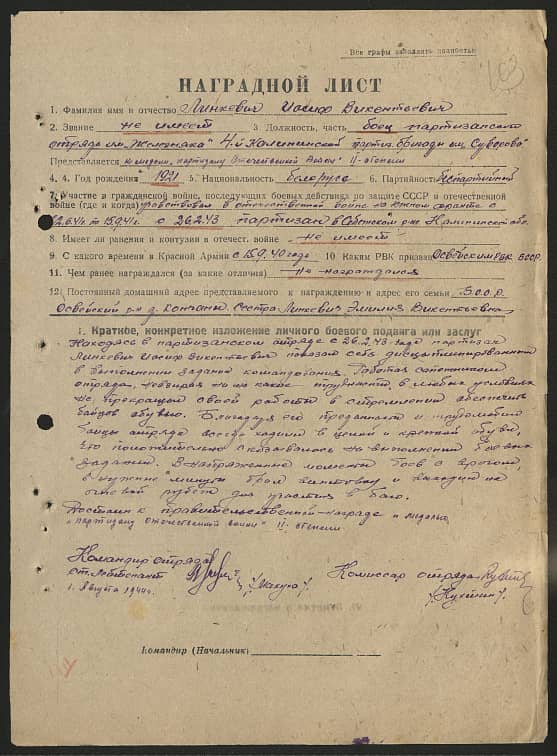 Все графы заполнять полностью
НАГРАДНОЙ ЛИСТ
1. Фамилия имя и отчество Линкевич Иосиф Викентьевич
2. Звание не имеет 3. Должность, часть боец партизанского
отряда им. Железняка 4-й Калининской партиз. бригады им. Суворова
Представляется к медали, партизану Отечественной Войны II степени
4. 4. Год рождения 1921 5. Национальность белорус 6. Партийность беспартийный
7. Участие в гражданской войне, последующих боевых действиях по защите СССР и отечественной
войне (где и когда) участвовал в отечественной войне на южном фронте с
22.6.41г по 15.9.41г. с 26.2.43 партизан в Себежском р-не Калининской обл.
8. Имеет ли ранения и контузии в отечест. войне не имеет
9. С какого времени в Красной Армии с 15.9.40 года 10 Каким РВК призван Освейским РВК БССР.
11. Чем ранее награждался (за какие отличия) не награждался
12. Постоянный домашний адрес представляемого к награждению и адрес его семьи БССР
Освейский р-н д. сестра Линкевич Эмилия Викентьевна
I. Краткое, конкретное изложение личного боевого подвига или заслуг
Находясь в партизанском отряде с 26.2.43 года партизан
Линкевич Иосиф Викентьевич показал себя дисциплинированным
в выполнении задания командования. Работая сапожником
отряда, невзирая ни на какие трудности в любых условиях
не прекращал своей работы в стремлении обеспечить
бойцов обувью. Благодаря его преданности и трудолюбию
бойцы отряда всегда ходили в целой и крепкой обуви,
что положительно сказывалось на выполнении боевых
заданий. В напряженные моменты боев с врагом,
в нужные минуты брал винтовку и выходил на
огневой рубеж для участия в бою.
Достоин к правительственной награде и медали
"партизану Отечественной войны" II степени.
Командир отряда Комиссар отряда
ст. лейтенант
1. Августа 1944 г.
Командир (Начальник)